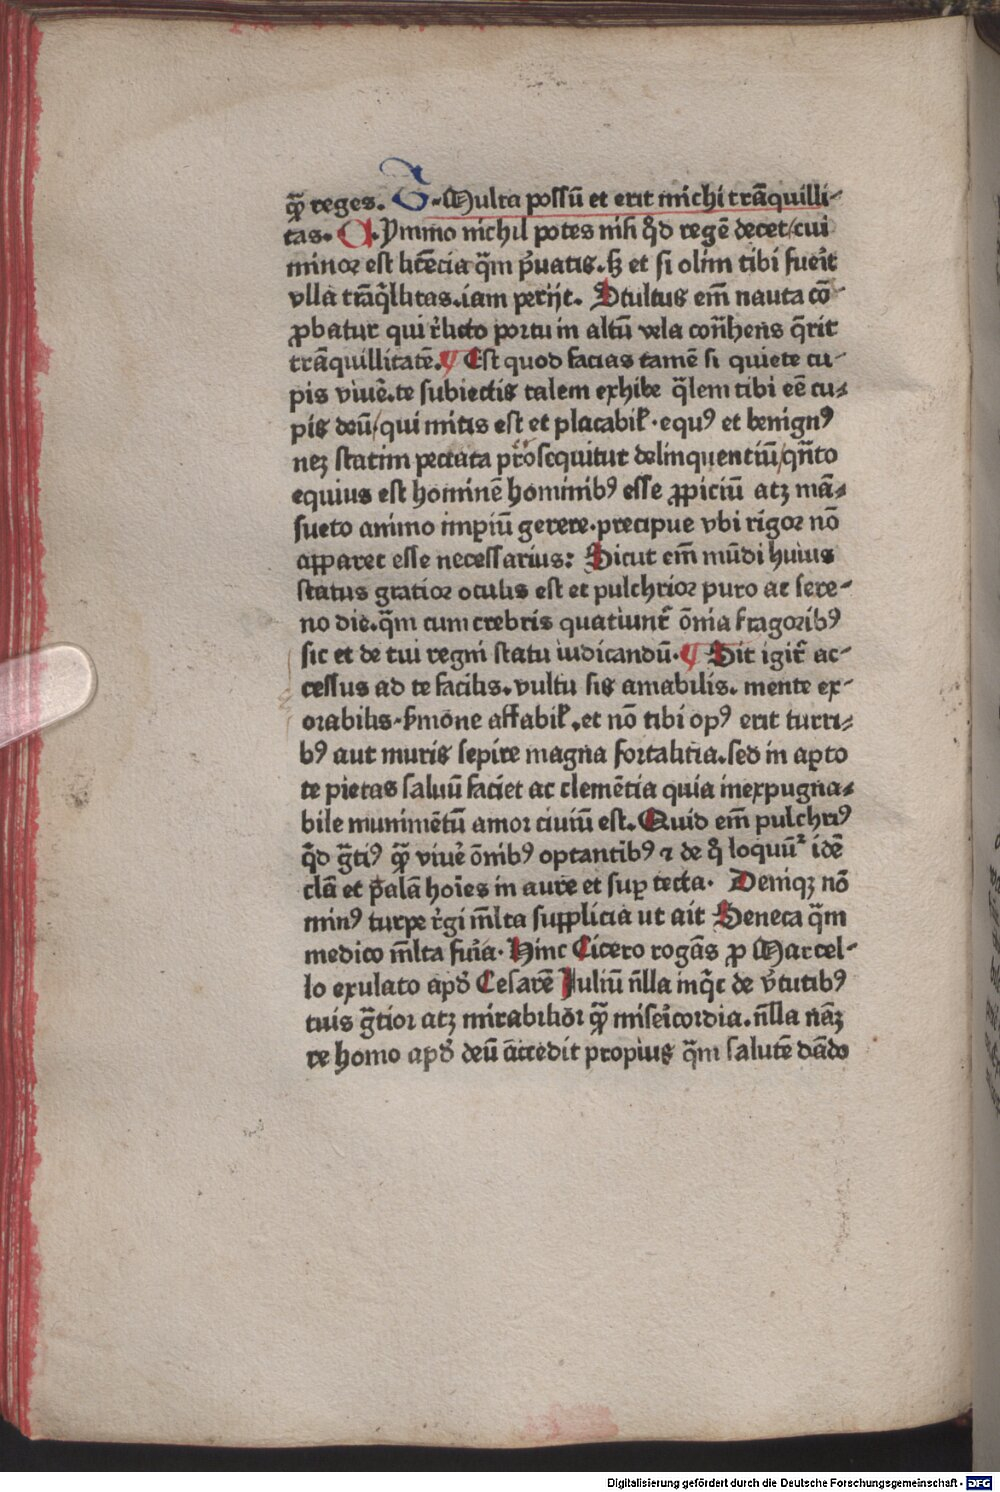 qꝫ reges. S. Multa possū et erit michi trāquilli-
tas. A. Ymmo nichil potes nisi qd̄ regē decet/cui
minor est licēcia q̄m pͥuatis. sꝫ et si olim tibi fueīt
vlla trāqͥllitas. iam perijt. Stultus em̄ nauta cō-
ꝓbatur qui rͤlicto portu in altū vela con̄hens q̄rit
trāquillitatē. ¶ Est quod facias tamē si quiete cu-
pis viuē. te subiectis talem exhibe q̄lem tibi eē cu-
pis deū/qui mitis est et placabil̕. equꝰ et benignꝰ
neꝫ statim peccata prosequitur delinquentiū/qn̄to
equius est hominē hominibꝰ esse ꝓpiciū atꝫ mā-
sueto animo imꝑiū gerere. precipue vbi rigor nō
apparet esse necessarius: Sicut em̄ mūdi huius
status gratior oculis est et pulchrior puro ac sere-
no die. q̄m cum crebris quatiunt̄ ōnia fragoribꝰ
sic et de tui regni statu iudicandū. ¶ Sit igit̄ ac-
cessus ad te facilis. vultu sis amabilis. mente ex-
orabilis. s̄mone affabil̕. et nō tibi opꝰ erit turri-
bꝰ aut muris sepire magna fortalitia. sed in aꝑto
te pietas saluū faciet ac clemētia quia inexpugna-
bile munimētū amor ciuiū est. Quid em̄ pulchriꝰ
qͥd gͣtiꝰ qꝫ viuē ōnibꝰ optantibꝰ ⁊ de qͦ loquūr idē
clā et palā hoīes in aure et suꝑ tecta. Deniqꝫ nō
minꝰ turpe rͤgi ml̄ta supplicia ut ait Seneca q̄m
medico ml̄ta funͤa. Hinc Cicero rogās ꝓ Marcel-
lo exulato apd̕ Cesarē Juliū n̄lla inqͥt de vͥtutibꝰ
tuis gͣtior atꝫ mirabilior qꝫ miseīcordia. n̄lla nāꝫ
re homo apd̕ deū accedit propius q̄m salutē dādo
Digitalisierung gefördert durch die Deutsche Forschungsgemeinschaft - DFG